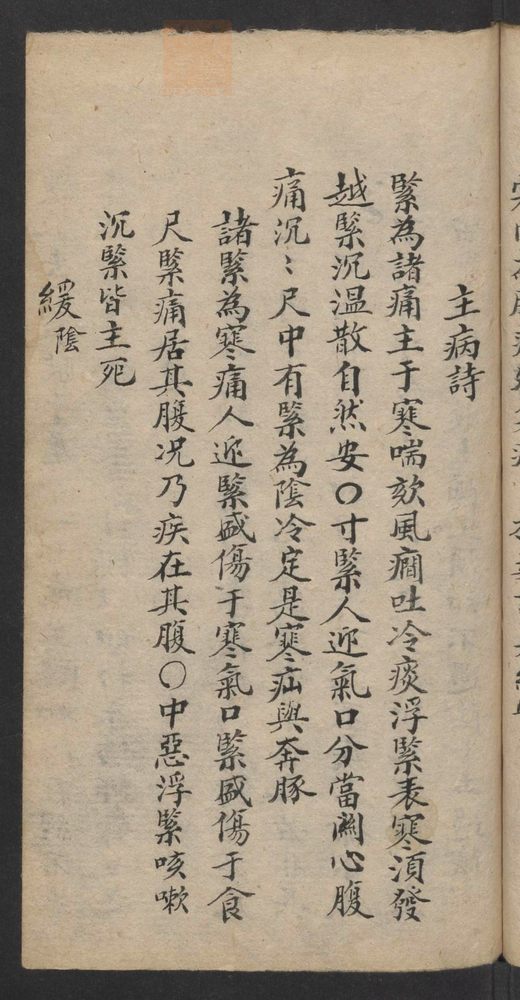 主病詩
緊為諸痛主于寒喘欬風癎吐冷痰浮緊表寒須發
越緊沉温散自然安〇寸緊人迎氣口分當関心腹
痛沉〻尺中有緊為陰冷定是寒疝與奔豚
諸緊為寒痛人迎緊盛傷于寒氣口緊盛傷于食
尺緊痛居其腹况乃疾在其腹〇中惡浮緊咳嗽
沉緊皆主死
緩陰